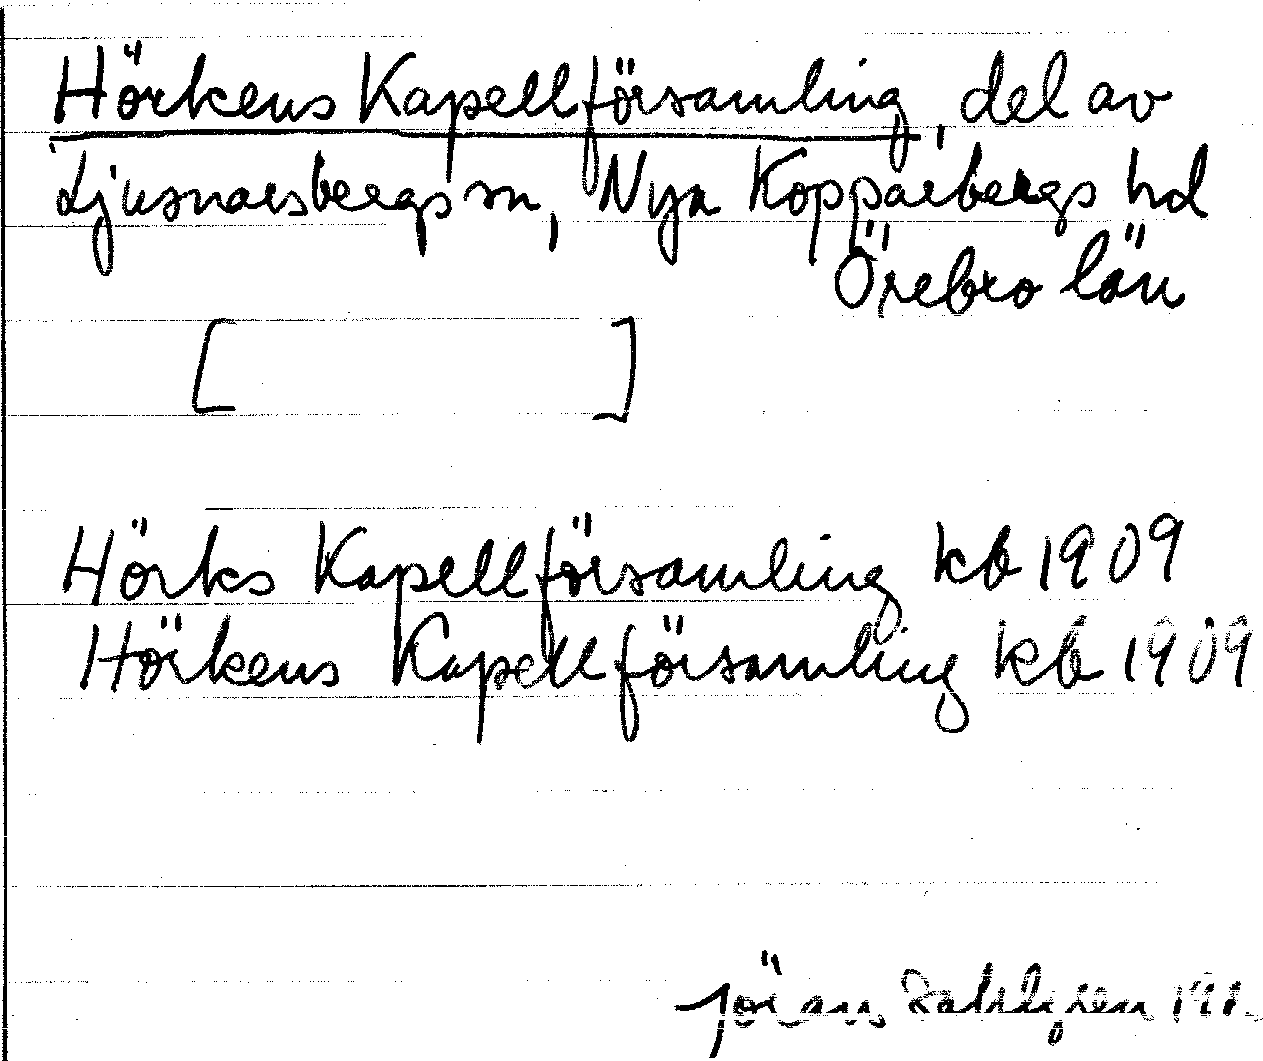 Hörkens Kapellförsamling, del av
Ljusnarsbergs sn, Nya Kopparbergs hd
Örebro län
[ ]
Hörks Kapellförsamling kb 1909
Hörkens Kapellförsamling kb 1909
Jöran Sahlgren